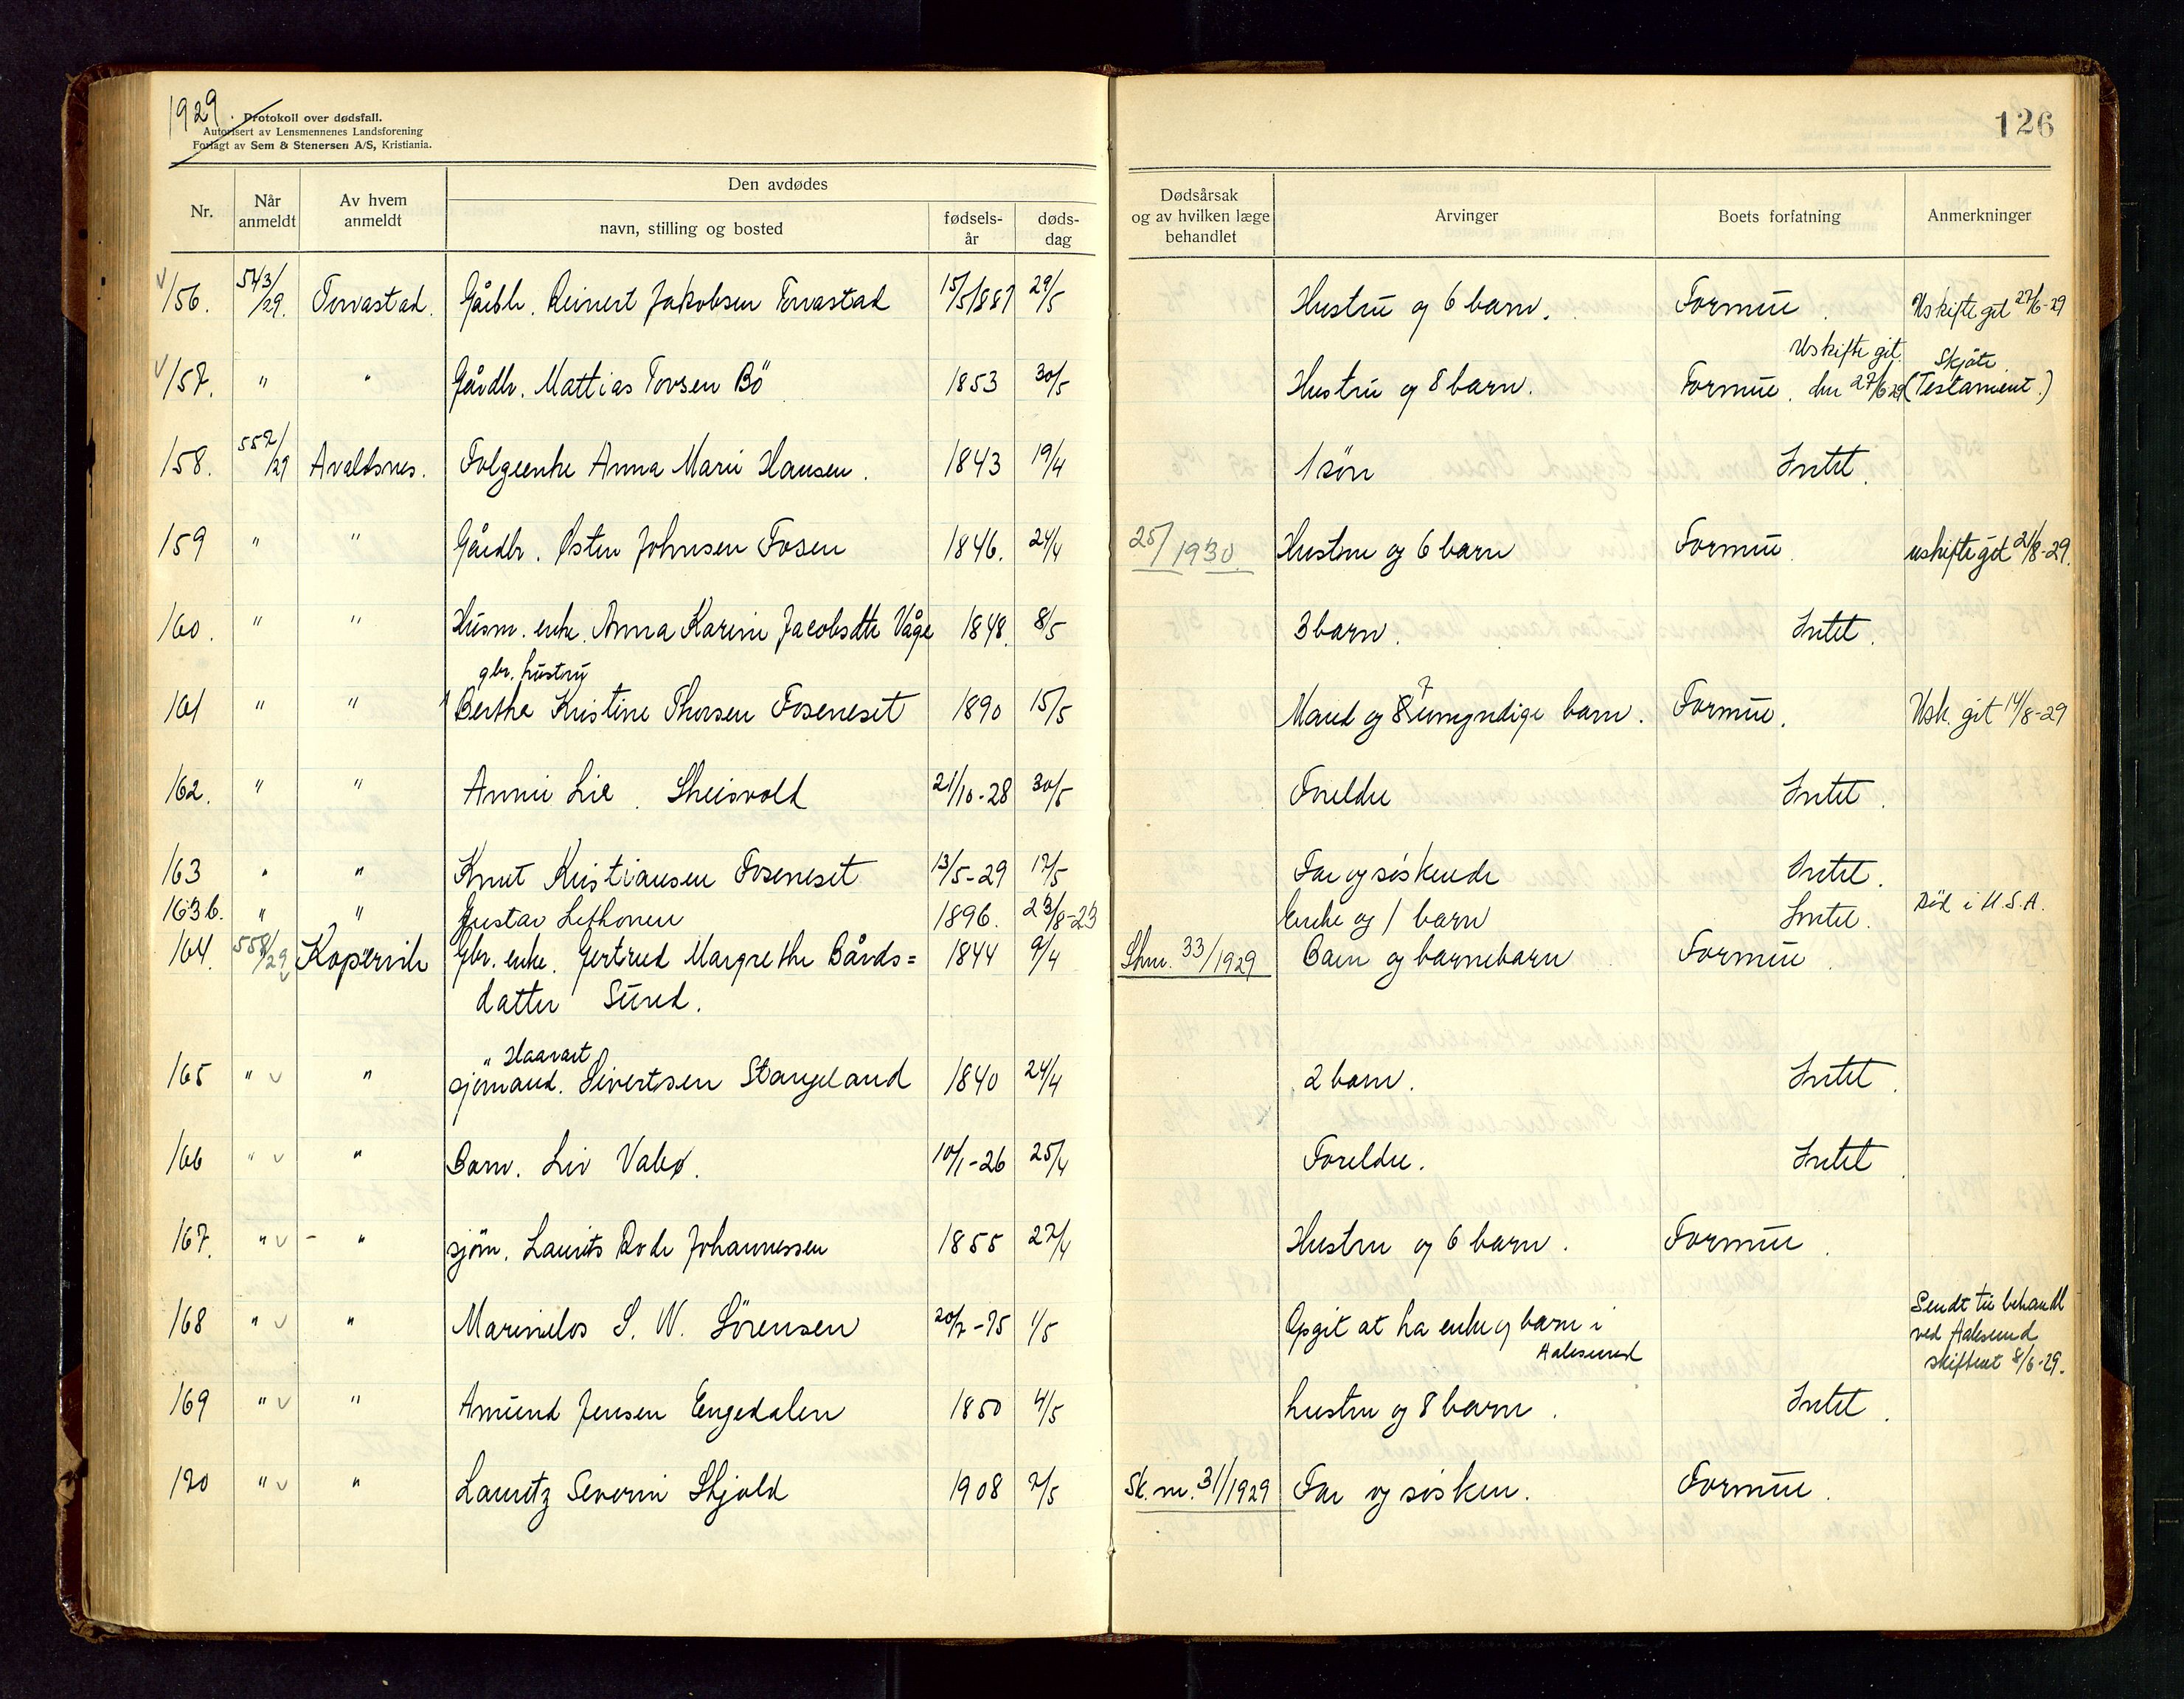 1929.
Protokoll over dødsfall.
Autorisert av Lensmennenes Landsforening
Forlagt av Sem & Stenersen A/S, Kristiania.
126
Nr. Når anmeldt Av hvem anmeldt Den avdødes navn, stilling og bosted fødsels-år døds-dag Dødsårsak og av hvilken læge behandlet Arvinger Boets forfatning Anmerkninger
156. 543/29. Torvastad. Gårdbr. Reinert Jakobsen Torvastad 15/5 1887 29/5 Hustru og 6 barn. Formue. Uskifte git 27/6-29
157. " " Gårdbr. Mattias Torsen Bö 1853 30/5 Hustru og 8 barn. Formue. Uskifte git den 27/6 29 Skjøte (Testament.)
158. 557/29 Avaldsnes. Folgeenke Anna Marie Hansen. 1843 19/4 1 søn Intet.
159 " " Gårdbr. Østen Johnsen Fosen 1846. 24/4 25/1930 Hustru og 6 barn Formue. uskifte git 21/8-29.
160. " " Husm. enke. Anna Karine Jacobsdtr Våge 1848. 8/5 3 barn. Intet.
gbr. hustru
161 " " Bertha Kristine Thorsen Foseneset 1890 15/5 Mand og 8 7 umyndige barn. Formue. Usk. git 14/8-29
162. " " Annie Lie. Skeisvold 21/10-28 30/5 Foreldre Intet.
163 " " Knut Kristiansen Foseneset 13/5-29 17/5 Far og søskende Intet.
163b. " " Gustav Lethonen 1896. 23/8-23 Enke og 1 barn Intet. Död i U.S.A.
164. 558/29 Kopervik Gbr. enke. Gertrud Margrethe Bårds= 1844 9/4 Skm. 33/1929 Barn og barnebarn Formue.
datter Sund.
" Haavart
165 " " sjømand. Sivertsen Stangeland 1840 24/4 2 barn. Intet.
166 " " Barn. Liv Valø. 10/1-26 25/4 Foreldre. Intet.
167. " - " sjøm. Laurits Rode Johannessen 1855 27/4 Hustru og 6 barn. Formue.
168 " " Marinelos S. W. Sörensen 20/7-75 1/5 Opgit at ha enke og barn i Aalesund Sendt til behandl ved Aalesund skifteret 8/6-29.
169 " " Amund Jensen Engedalen 1850 4/5 hustru og 8 barn. Intet.
170 " " Lauritz Severin Skjold 1908 2/5 Sk. nr. 31/1929 Far og søsken. Formue.